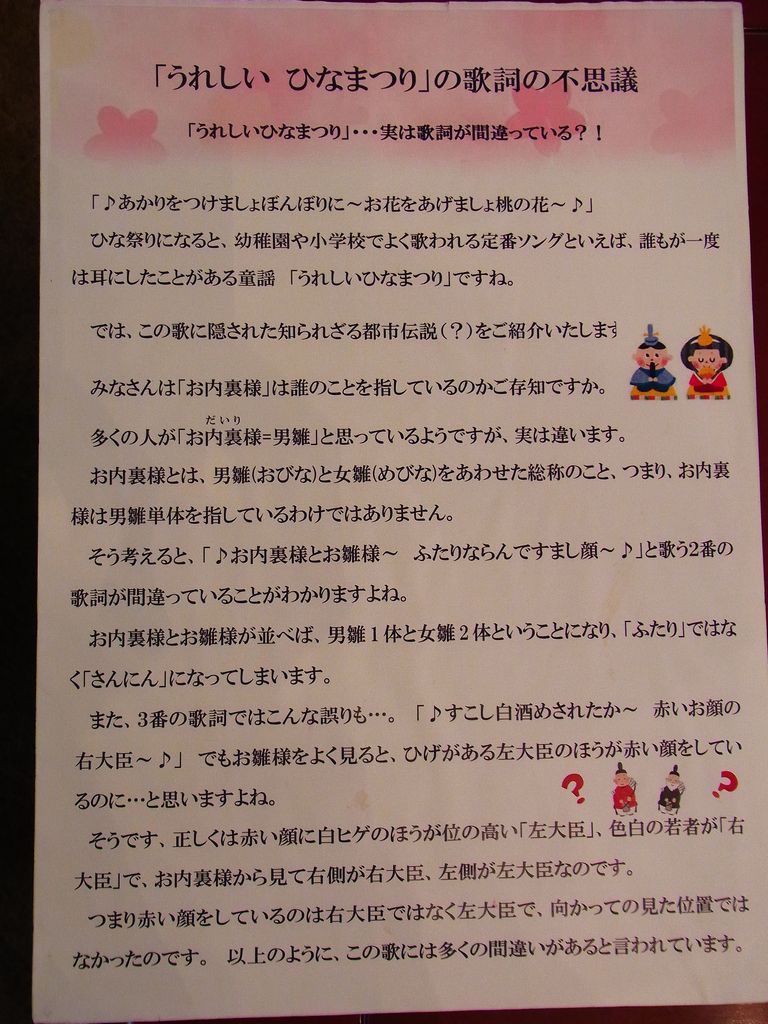 「うれしい ひなまつり」の歌詞の不思議
「うれしいひなまつり」・・・実は歌詞が間違っている？！
「♪あかりをつけましょぼんぼりに～お花をあげましょ桃の花～♪」
ひな祭りになると、幼稚園や小学校でよく歌われる定番ソングといえば、誰もが一度
は耳にしたことがある童謡 「うれしいひなまつり」ですね。
では、この歌に隠された知られざる都市伝説（？）をご紹介いたします
みなさんは「お内裏様」は誰のことを指しているのかご存知ですか。
だいり
多くの人が「お内裏様=男雛」と思っているようですが、実は違います。
お内裏様とは、男雛(おびな)と女雛(めびな)をあわせた総称のこと、つまり、お内裏
様は男雛単体を指しているわけではありません。
そう考えると、「♪お内裏様とお雛様～ ふたりならんですまし顔～♪」と歌う2番の
歌詞が間違っていることがわかりますよね。
お内裏様とお雛様が並べば、男雛１体と女雛２体ということになり、「ふたり」ではな
く「さんにん」になってしまいます。
また、3番の歌詞ではこんな誤りも…。 「♪すこし白酒めされたか～ 赤いお顔の
右大臣～♪」 でもお雛様をよく見ると、ひげがある左大臣のほうが赤い顔をしてい
るのに…と思いますよね。
? ?
そうです、正しくは赤い顔に白ヒゲのほうが位の高い「左大臣」、色白の若者が「右
大臣」で、お内裏様から見て右側が右大臣、左側が左大臣なのです。
つまり赤い顔をしているのは右大臣ではなく左大臣で、向かっての見た位置では
なかったのです。 以上のように、この歌には多くの間違いがあると言われています。